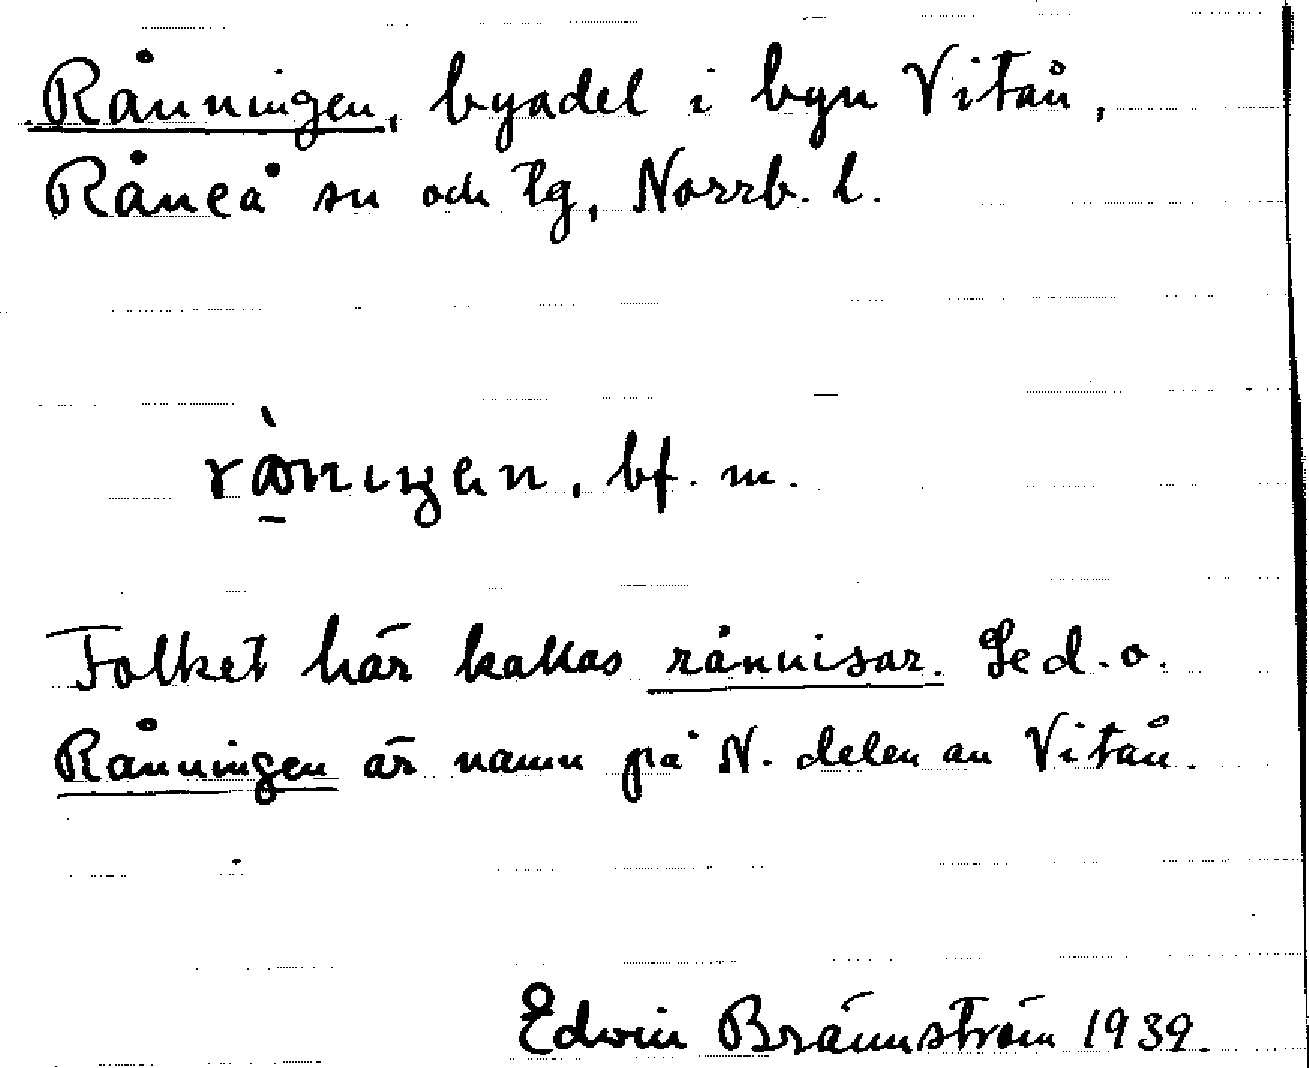 Rånningen, byadel i byn Vitån,
Råneå sn och tg, Norrb. l.
bf. m.
Folket här kallas rånnisar. Se d. o.
Rånningen är namn på N. delen av Vitån.
Edwin Brännström 1939.